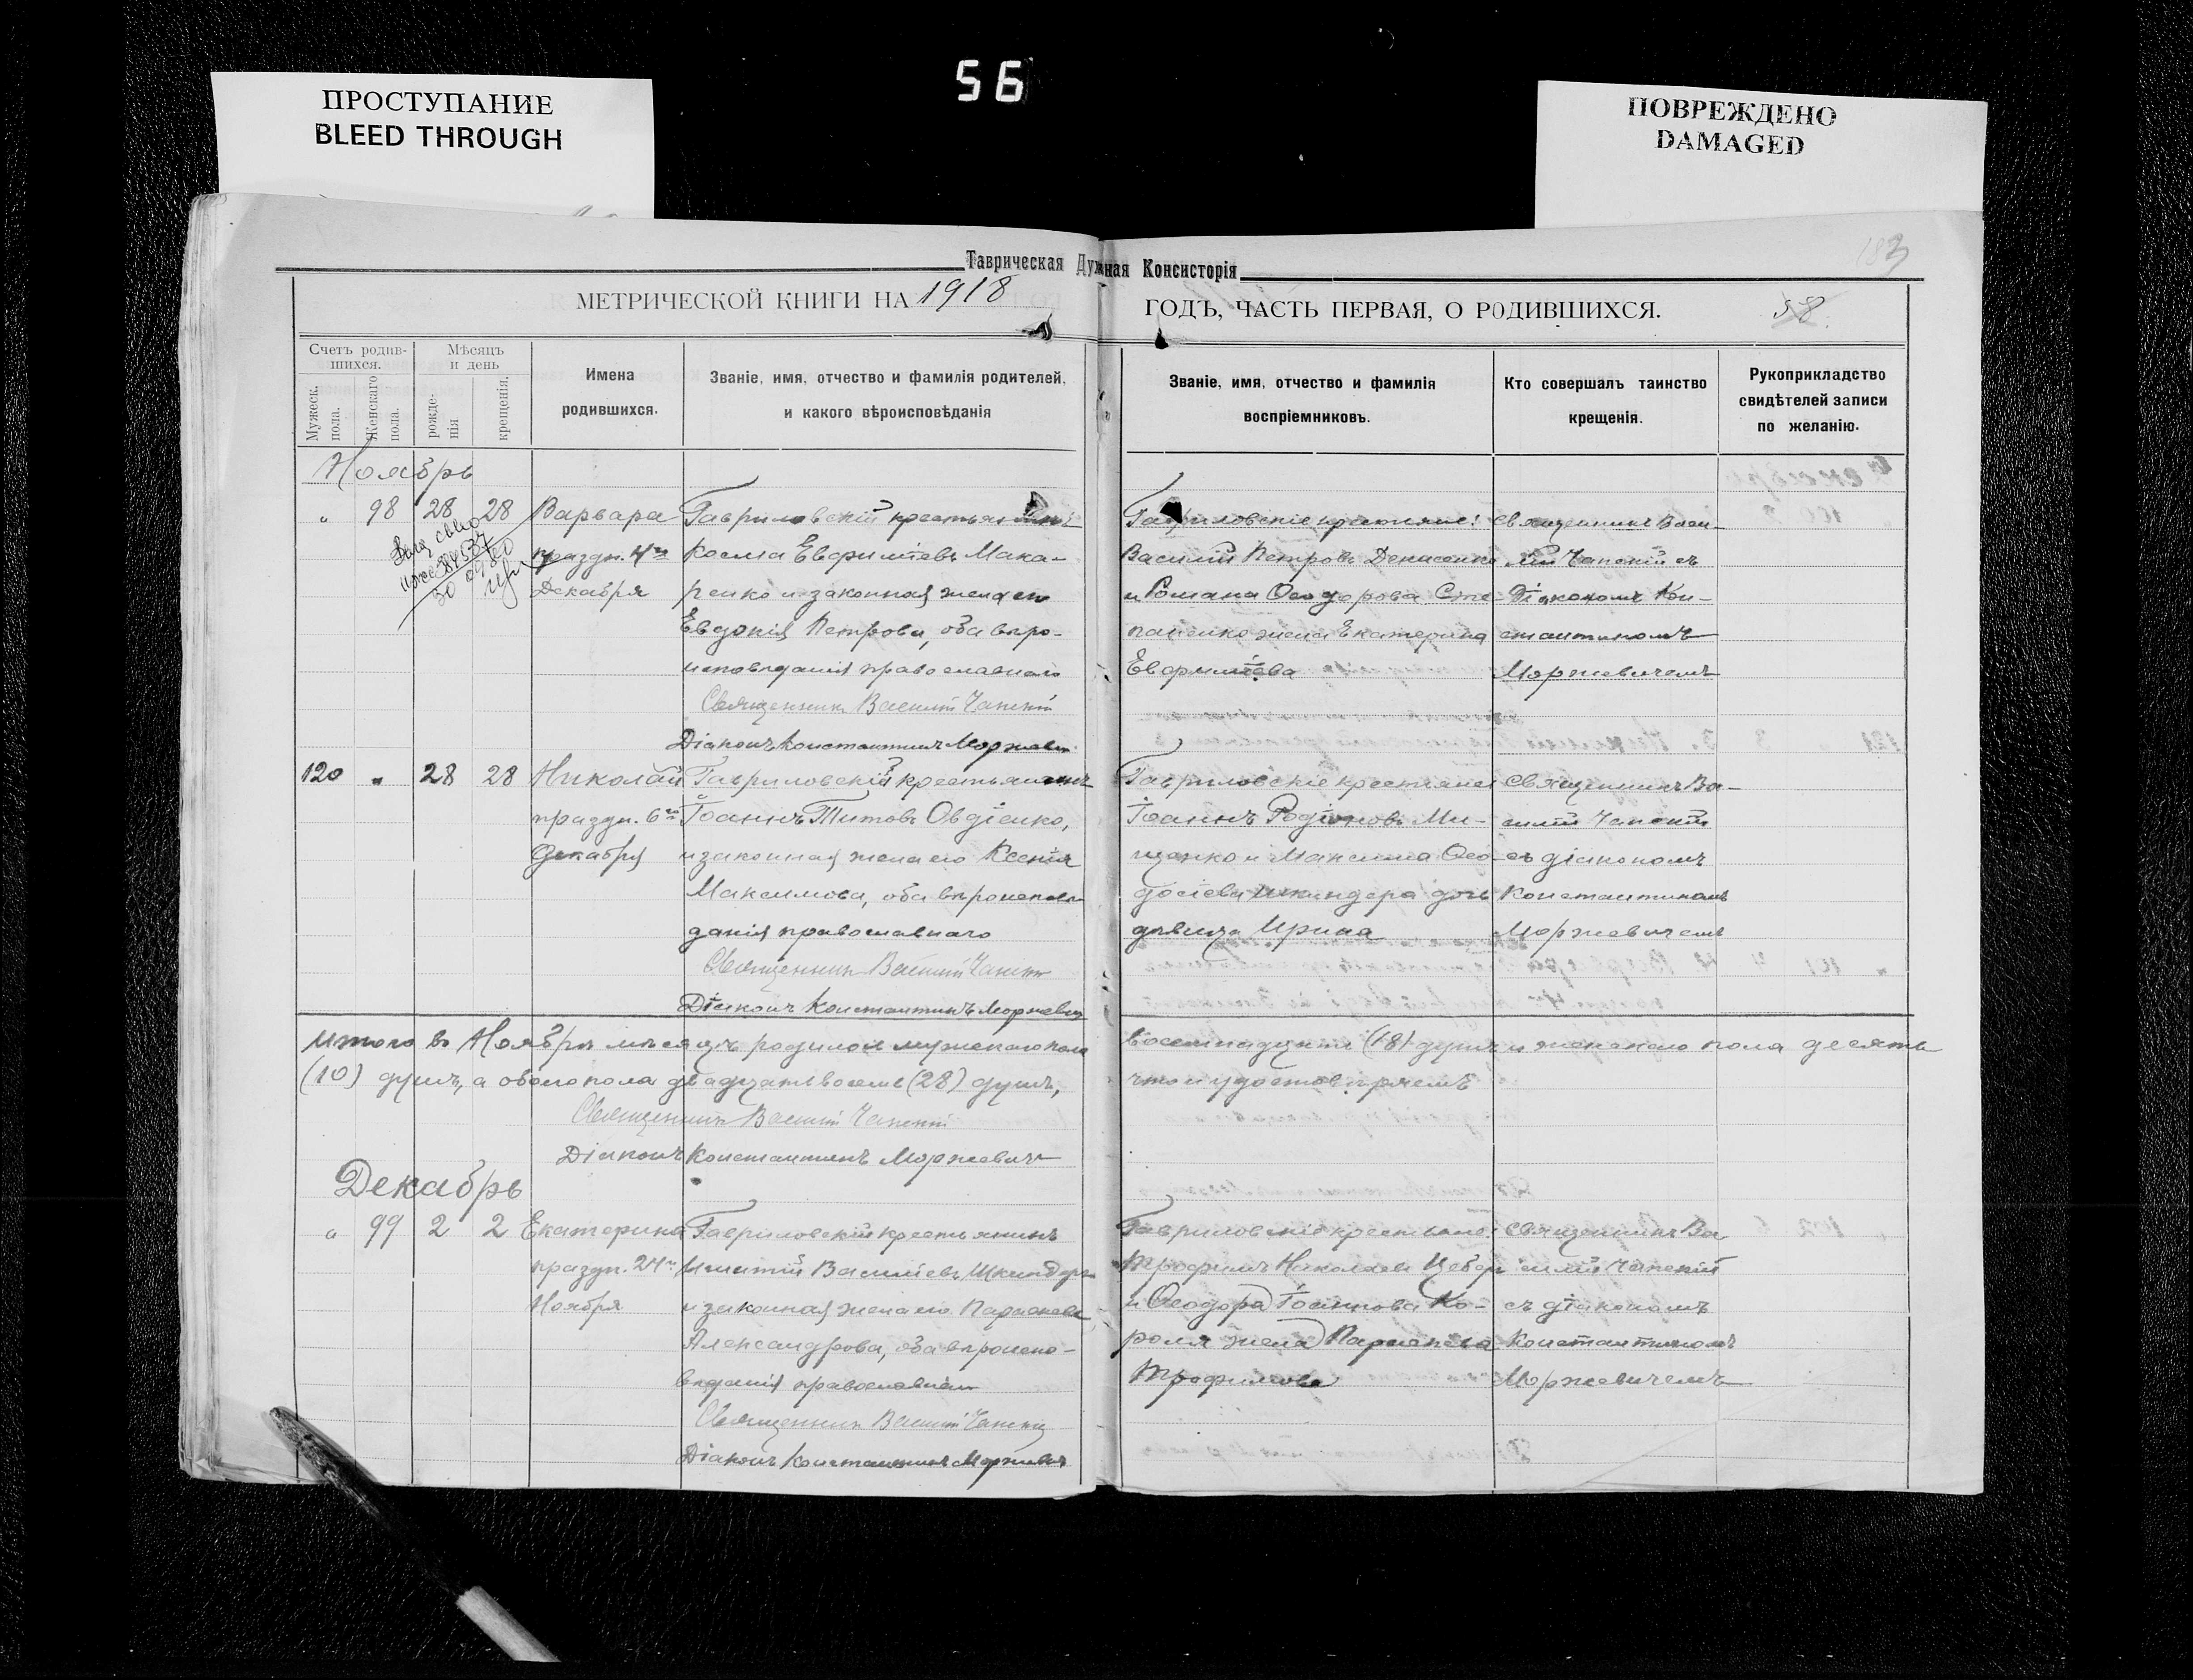 56
ПРОСТУПАНИЕ
BLEED THROUGH
ПОВРЕЖДЕНО
DAMAGED
183
Таврическая Духовная Консисторія
МЕТРИЧЕСКОЙ КНИГИ НА 1918
ГОДЪ, ЧАСТЬ ПЕРВАЯ, О РОДИВШИХСЯ.
58
Счетъ родив-
шихся.
Мужеск. пола.
Женскаго пола.
Мѣсяцъ
и день
рожде-
нія
крещенія.
Имена
родившихся.
Званіе, имя, отчество и фамилія родителей,
и какого вѣроисповѣданія
Званіе, имя, отчество и фамилія
воспріемниковъ.
Кто совершалъ таинство
крещенія.
Рукоприкладство
свидѣтелей записи
по желанію.
Ноябрь
" 98 28 28
Варвара
праздн. 4го
Декабря
Гавриловскій крестьянинъ
Косма Евфиміевъ Мака-
ренко и законная жена его
Евдокія Петрова, оба вѣро-
исповѣданія православнаго
Священникъ Василій Чапскій
Діаконъ Константинъ Моржевичъ
Гавриловскіе крестьяне:
Василій Петровъ Денисенко
и Романа Ѳеодорова Сте-
паненко жена Екатерина
Евфиміева
Священникъ Васи-
лій Чапскій съ
Діакономъ Кон-
стантиномъ
Моржевичемъ
120 " 28 28
Николай
праздн. 6го
Декабря
Гавриловскій крестьянинъ
Іоаннъ Титовъ Овдіенко,
и законная жена его Ксенія
Максимова, оба вѣроисповѣ-
данія православнаго
Священникъ Василій Чапскій
Діаконъ Константинъ Моржевичъ
Гавриловскіе крестьяне:
Іоаннъ Родіоновъ Ми-
щенко и Максима Ѳео-
досіева Шкиндера дочь
дѣвица Ирина
Священникъ Ва-
силій Чапскій
съ діакономъ
Константиномъ
Моржевичемъ
Итого въ Ноябрѣ мѣсяцѣ родилось мужескаго пола восемнадцать (18) душъ и женскаго пола десять
(10) душъ, а обоего пола двадцать восемь (28) душъ, что и удостовѣряемъ
Священникъ Василій Чапскій
Діаконъ Константинъ Моржевичъ
Декабрь
" 99 2 2
Екатерина
праздн. 24го
Ноября
Гавриловскій крестьянинъ
Игнатій Василіевъ Шкиндеръ
и законная жена его Параскева
Александрова, оба вѣроиспо-
вѣданія православнаго
Священникъ Василій Чапскій
Діаконъ Константинъ Моржевичъ
Гавриловскіе крестьяне:
Трофимъ Николаевъ Цебер
и Ѳеодора Іоаннова Ко-
роля жена Параскева
Трофимова
Священникъ Ва-
силій Чапскій
съ діакономъ
Константиномъ
Моржевичемъ